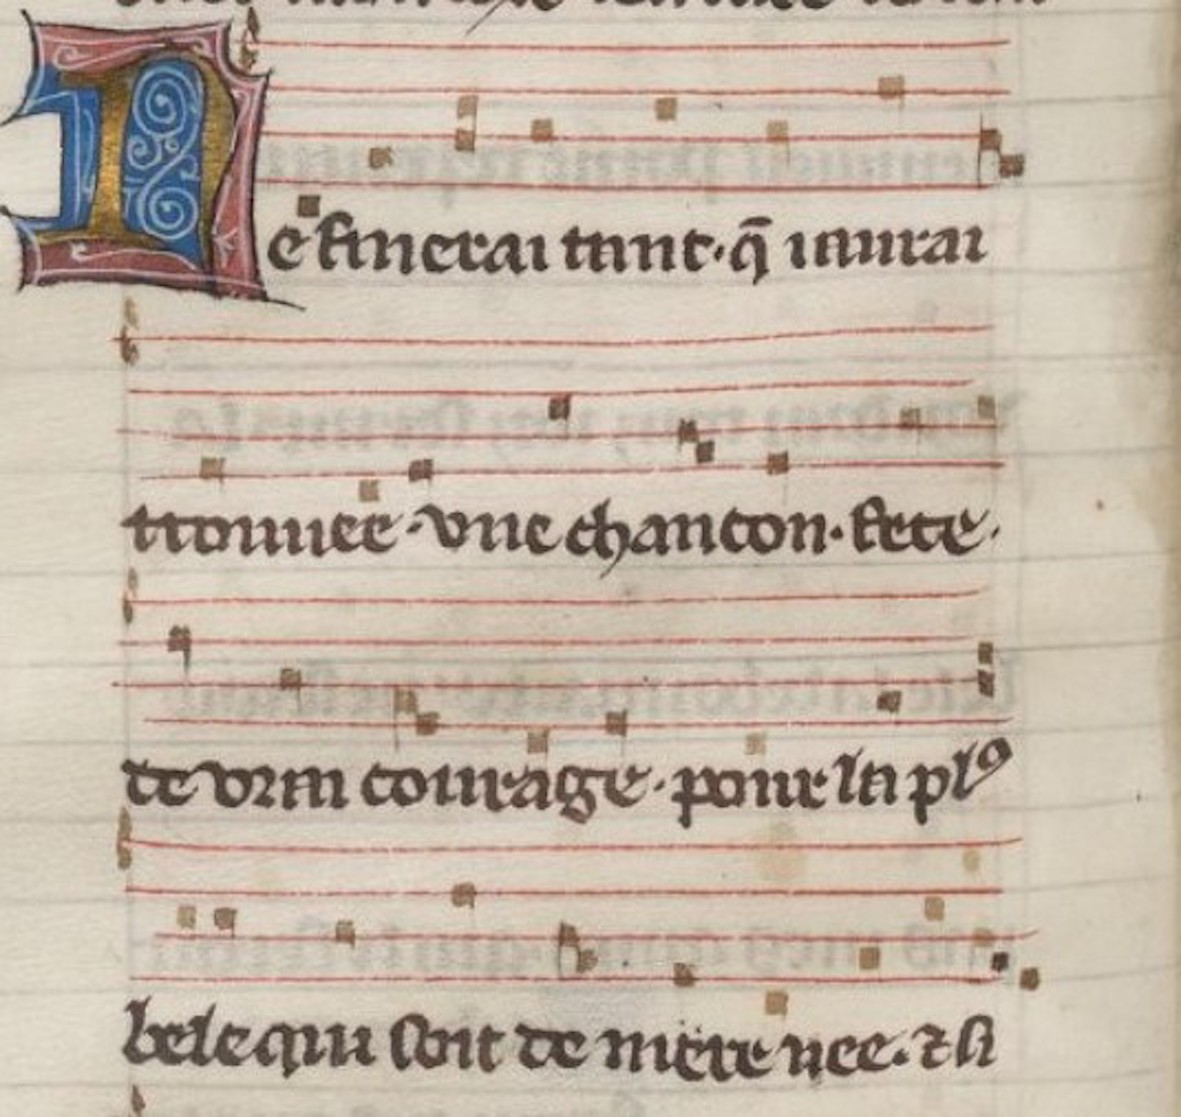 Ne finerai tant · q̄ iaurai
trouuee · vne chancon · fete ·
de vrai courage · pour la pl9
bele qui soit de mere nee · ⁊ si